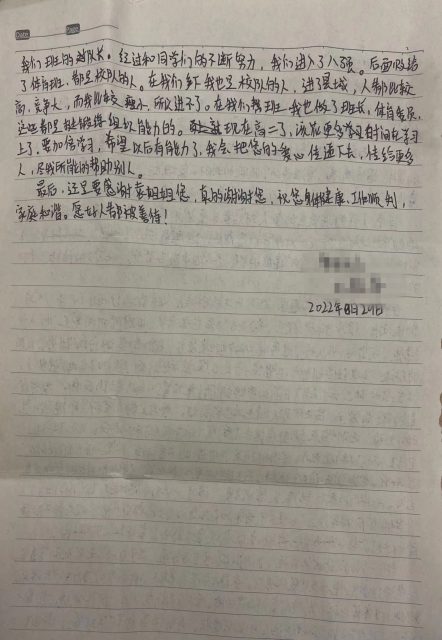 Date
我们班的队长。经过和同学们的不断努力，我们进入了八强。后面败给
了体育班，都是校队的人。在我们乡下我也是校队的人，进了县城，人都比较
高，竞争大，而我比较矮小，所以进不了。在我们班我也做了班长，体育委员，
这些都是锻炼组织能力的。现在高二了，该花更多学习时间在学习
上了，要加倍学习，希望以后有能力了，我会把您的爱心传递下去，传给更多
人，尽我所能的帮助别人。
最后，还是要感谢黄姐姐您，真的谢谢您，祝您身体健康，工作顺利，
家庭和谐。愿好人都被善待！
2022年 月29日